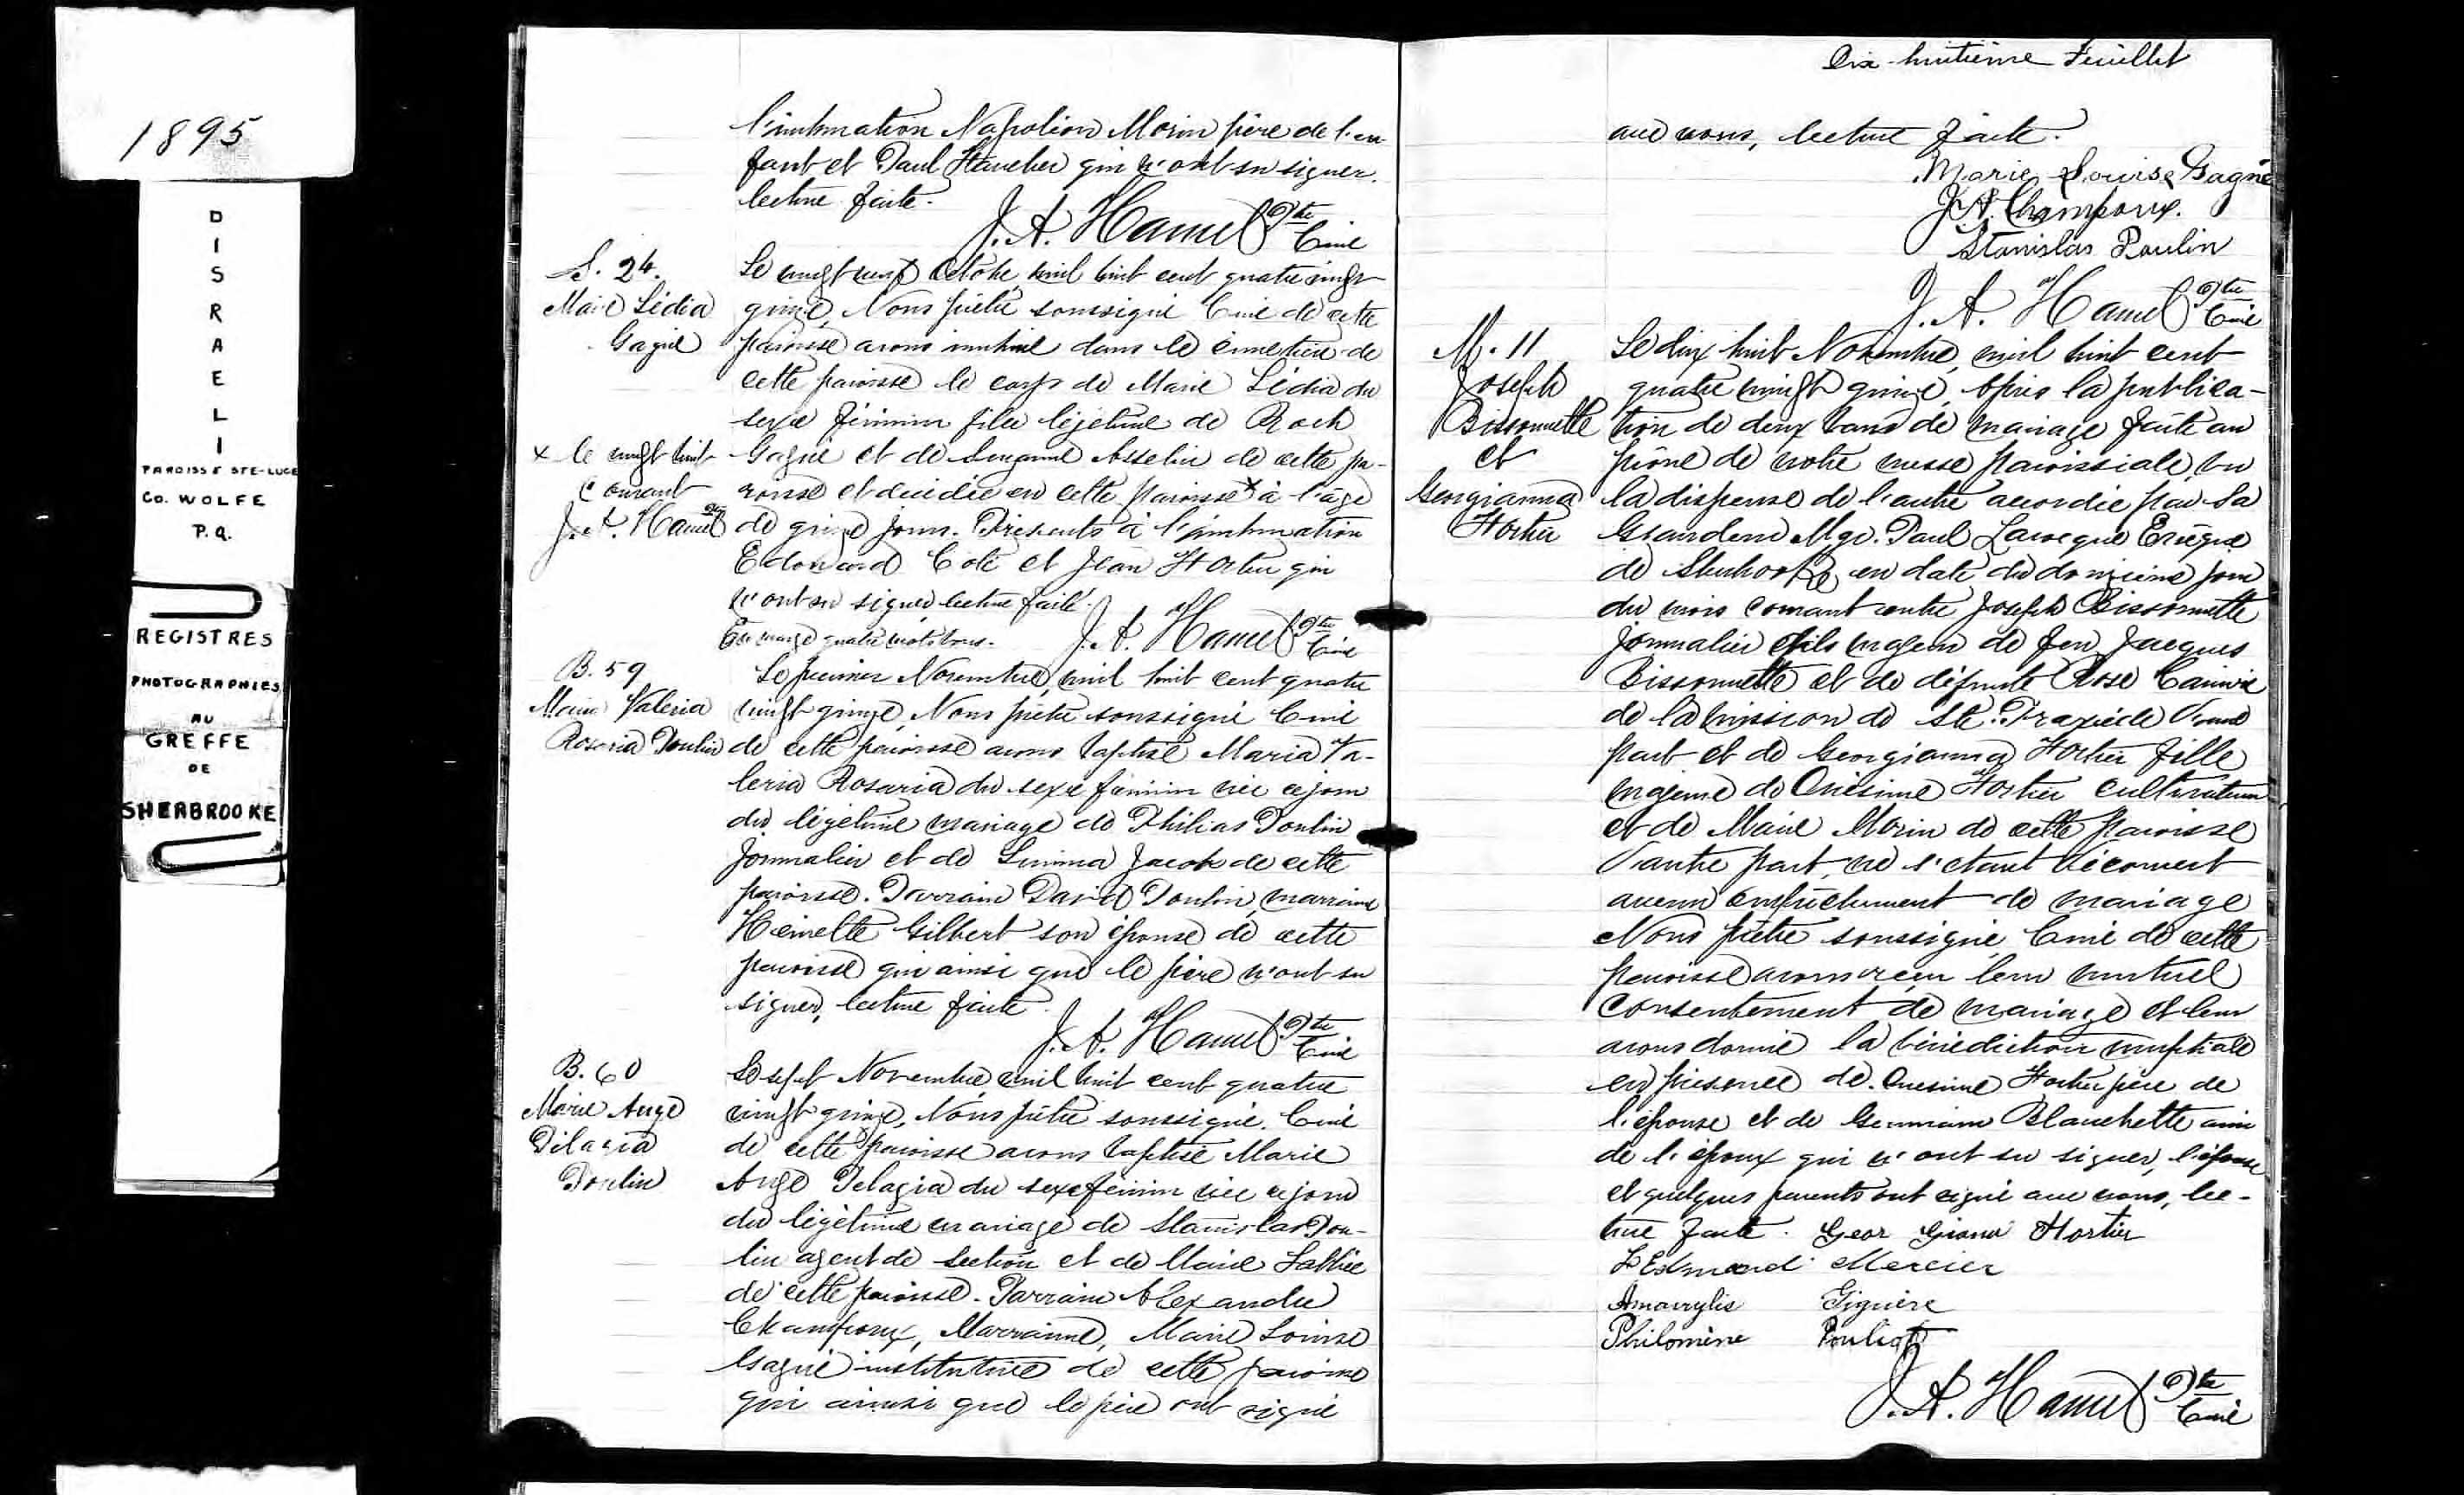 1895
DISRAELI
PAROISSE STE-LUCE
CO. WOLFE
P.Q.
REGISTRES
PHOTOGRAPHIES
AU
GREFFE
DE
SHERBROOKE
l'inhumation Napoléon Morin père de l'en-
fant et Paul Faucher qui n'ont su signer.
lecture faite.
J. A. Hamel Ptre
Curé
S. 24.
Marie Lédia
Gagné
Le vingt neuf Octobre, mil huit cent quatre vingt
quinze, Nous prêtre soussigné Curé de cette
paroisse avons inhumé dans le cimetière de
cette paroisse le corps de Marie Lédia du
sexe féminin fille légetime de Roch
Gagné et de Suzanne Asselin de cette pa-
roisse et décédée en cette paroisse x à l'âge
de quinze jours. Présents à l'inhumation
Edouard Coté et Jean Fortier qui
n'ont su signer, lecture faite.
En marge quatre mots bons.
x le vingt huit
courant
J. A. Hamel Ptre
J. A. Hamel Ptre
Curé
B. 59
Maria Valeria
Rosaria Poulin
Le premier Novembre, mil huit cent quatre
vingt quinze, Nous prêtre soussigné Curé
de cette paroisse avons baptisé Maria Va-
leria Rosaria du sexe féminin née ce jour
du légetime mariage de Philias Poulin
Journalier et de Jacob de cette
paroisse. Parrain David Poulin, marraine
Gilbert son épouse de cette
paroisse qui ainsi que le père n'ont su
signer, lecture faite.
J. A. Hamel Ptre
Curé
B. 60
Marie Ange
Pelagia
Poulin
Le sept Novembre, mil huit cent quatre
vingt quinze, Nous prêtre soussigné, Curé
de cette paroisse avons baptisé Marie
Ange Pelagia du sexe féminin née ce jour
du légetime mariage de Stanislas Pou-
lin agent de section et de Marie
de cette paroisse. Parrain Alexandre
Champoux, Marraine, Marie Louise
Gagné institutrice de cette paroisse
qui ainsi que le père ont signé
Dix-huitième Feuillet
avec nous, lecture faite.
Marie Louise Gagné
J A. Champoux.
Stanislas Poulin
J. A. Hamel Ptre
Curé
M. 11
Joseph
Bissonnette
et
Georgianna
Fortier
Le dix huit Novembre, mil huit cent
quatre vingt quinze, Après la publica-
tion de deux bans de mariage faite au
prône de notre messe paroissiale, vu
la dispense de l'autre accordée par Sa
Grandeur Mgr. Paul Larocque Evêque
de Sherbrooke, en date du jour
du mois courant entre Joseph Bissonnette
Journalier fils majeur de feu Jacques
Bissonnette et de défunte Rose
de la mission de Ste. Praxède d'une
part et de Georgianna Fortier fille
majeure de Onésime Fortier cultivateur
et de Marie Morin de cette paroisse
d'autre part, ne s'étant découvert
aucun empêchement de mariage
Nous prêtre soussigné, Curé de cette
paroisse avons reçu leur mutuel
consentement de mariage et leur
avons donné la bénédiction nuptiale
en présence de Onesime Fortier père de
l'épouse et de Germain Blanchette ami
de l'époux qui n'ont su signer, l'épouse
et quelques parents ont signé avec nous, lec-
ture faite. Geor Giana Fortier
Edmond Mercier
Amarylis Giguère
Philomène Pouliot
J. A. Hamel Ptre
Curé